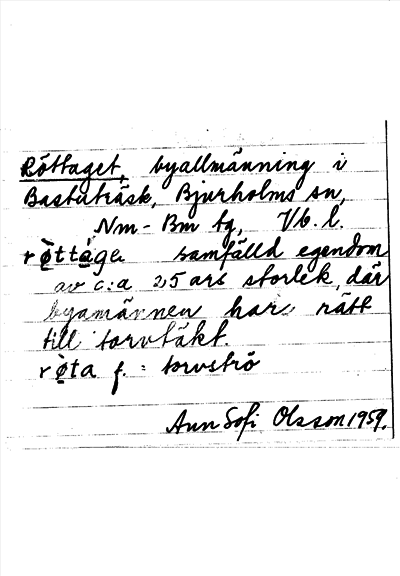 Röttaget, byallmänning i
Bastuträsk, Bjurholms sn,
Nm - Bm tg, Vb. l.
røttáge samfälld egendom
av c:a 2,5 ars storlek, där
byamännen har rätt
till torvtäkt.
røta f. = torvströ
Ann Sofi Olsson 1959.